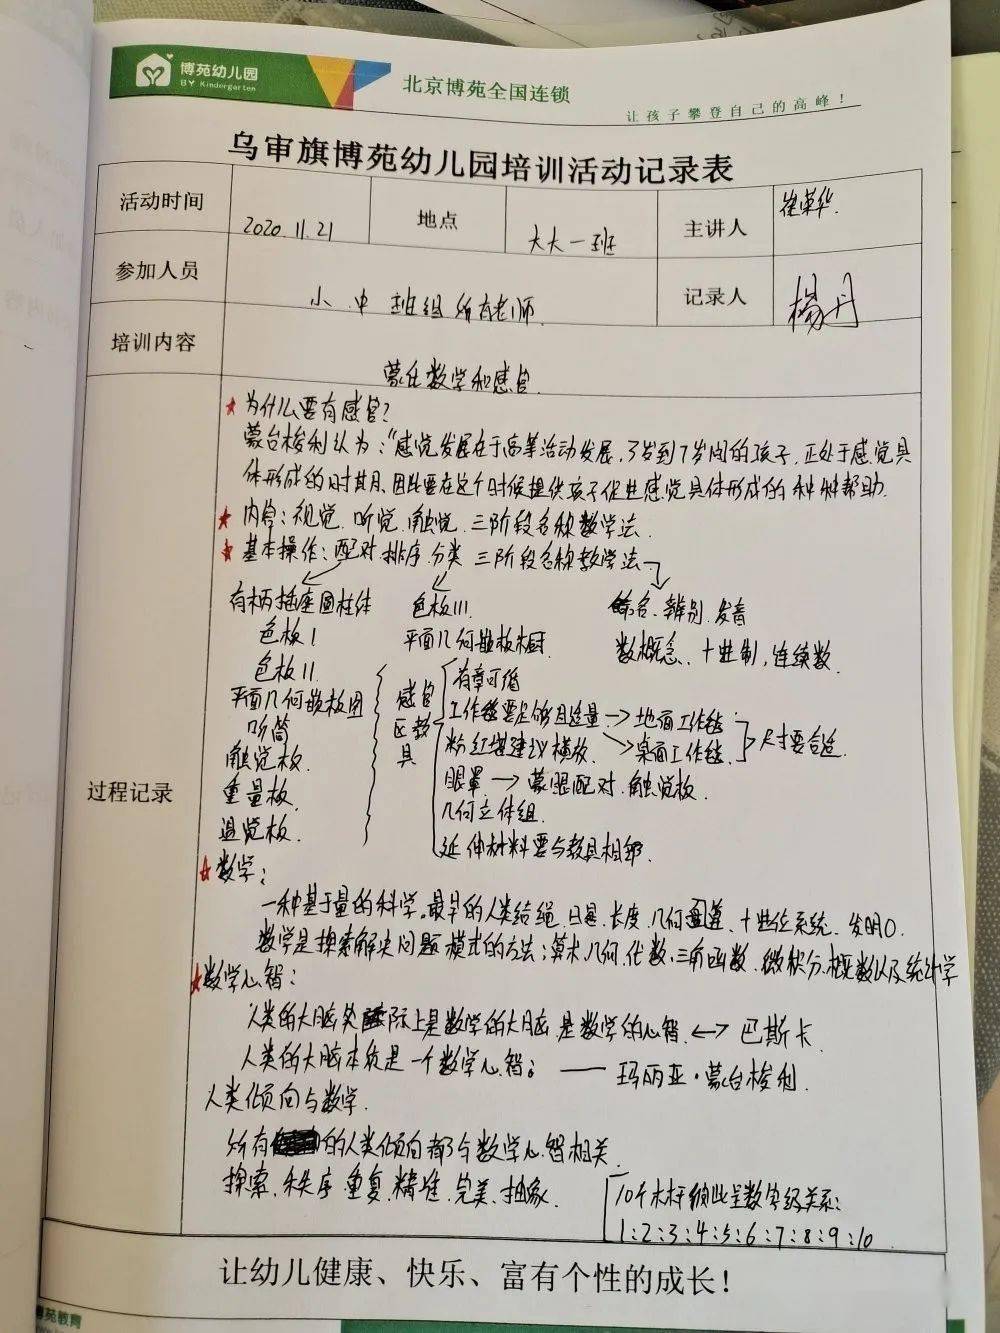 博苑幼儿园
BY Kindergarten
北京博苑全国连锁
让孩子攀登自己的高峰！
乌审旗博苑幼儿园培训活动记录表
活动时间 2020.11.21 地点 大大一班 主讲人 崔荣华
参加人员 小.中班组所有老师. 记录人 杨丹
培训内容 蒙氏数学和感官.
过程记录
★为什么要有感官？
蒙台梭利认为："感觉发展在于高等活动发展,3岁到7岁间的孩子,正处于感觉具
体形成的时期,因此要在这个时候提供孩子促进感觉具体形成的种种帮助.
★内容：视觉.听觉.触觉.三阶段名称教学法.
★基本操作：配对.排序.分类 三阶段名称教学法
有柄插座圆柱体 色板III. 命名.辨别.发音
色板I 平面几何嵌板橱. 数概念、十进制,连续数.
色板II
平面几何嵌板图
听筒
触觉板.
重量板.
温觉板.
感官区教具
有章可循
工作毯要足够且适量→地面工作毯
粉红塔建议横放. →桌面工作毯. 尺寸要合适.
眼罩→蒙眼配对.触觉板.
几何立体组.
延伸材料要与教具相邻.
★数学：
一种基于量的科学。最早的人类结绳.日晷.长度.几何.十进位系统.发明0.
数学是探索解决问题模式的方法；算术.几何.代数.三角函数.微积分.概数以及统计学
★数学心智：
人类的大脑实际上是数学的大脑.是数学的心智.←→巴斯卡.
人类的大脑本质是一个数学心智。——玛丽亚·蒙台梭利.
人类倾向与数学.
所有的人类倾向都与数学心智相关.
探索.秩序.重复.精准.完美.抽象.
10个木杆彼此呈数字级关系：
1:2:3:4:5:6:7:8:9:10.
让幼儿健康、快乐、富有个性的成长！
博苑教育